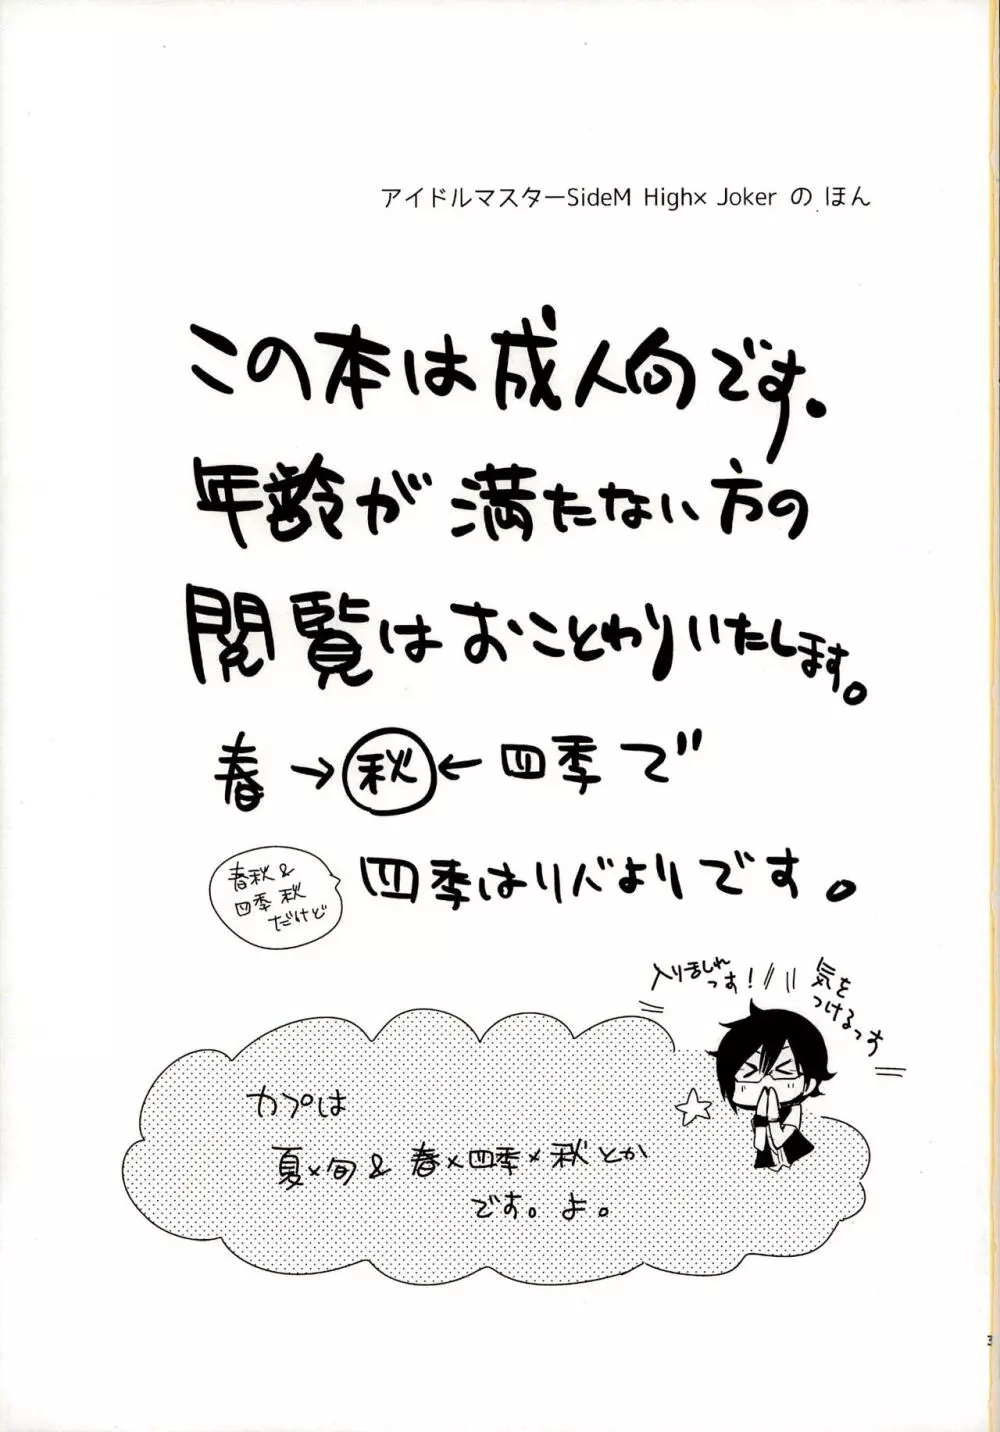 アイドルマスターSideM High× Joker の ほん
この本は成人向です。
年齢が満たない方の
閲覧はおことわりいたします。
春→秋←四季で
四季はリバよりです。
春秋&
四季秋
だけど
入り乱れ
っす!
気を
つけるっす
カプは
夏×旬 & 春×四季×秋とか
です。よ。
3